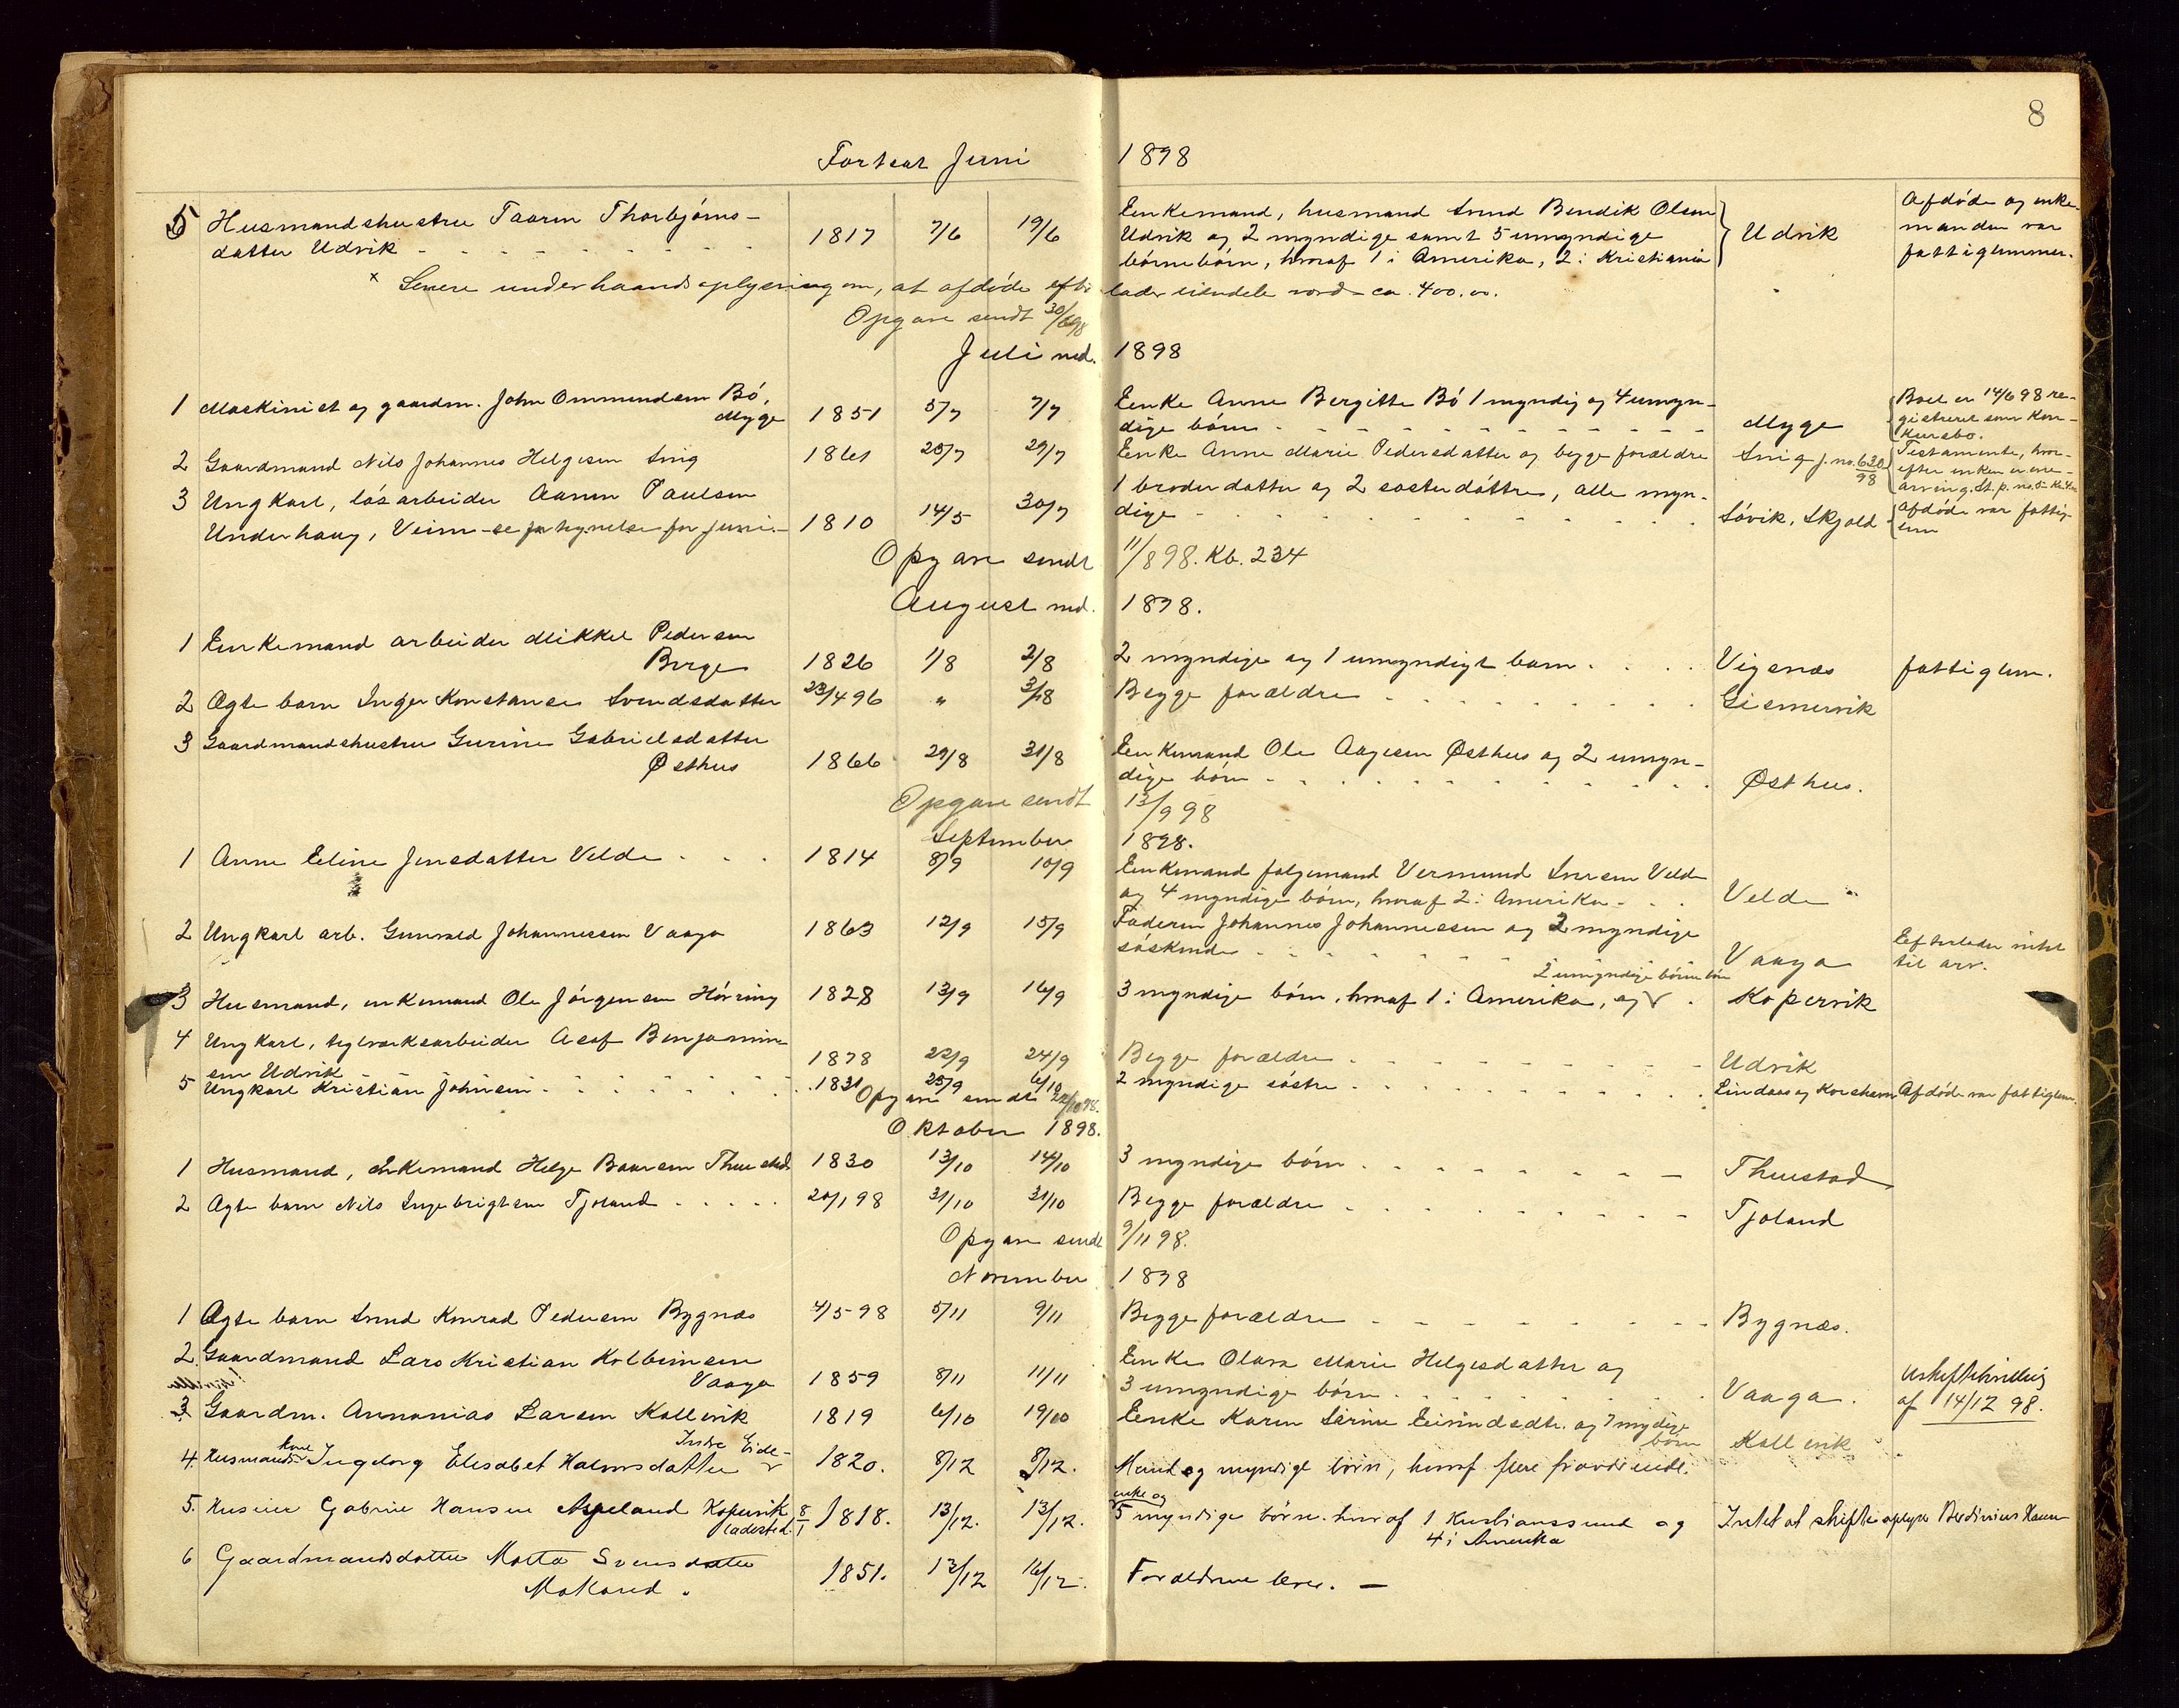 8
Fortsat Juni 1898
5 Husmandshustru Taaren Thorbjørns-
datter Udvik 1817 7/6 19/6
Enkemand, husmand Svend Bendik Olsen
Udvik og 2 myndige samt 5 umyndige
børnebørn, hvoraf 1 i Amerika, 2 i Kristiania
Udvik
Afdøde og enke-
manden var
fattiglemmer.
x Senere underhaandsoplysning om, at afdøde efter lader eiendele værd ca. 400.00.
Opgave sendt 30/6 98
Juli md. 1898
1 Maskinist og gaardm. John Ommundsen Bø,
Myge 1851 5/7 7/7
Enke Anne Bergitte Bø 1 myndig og 4 umyn-
dige børn
Myge
Boet er 14/6 98 re-
gistreret som kon-
kursbo.
2 Gaardmand Nils Johannes Helgesen Snig 1861 29/7
Enke Anne Marie Pedersdatter og begge forældre
Snig j.no. 630/98
Testamente, hvor-
efter enken er ene-
arving.
3 Ungkarl, løsarbeider Aanen Paulsen
Underhaug, Veim - se fortegnelse for juni. 1810 14/5 30/7
1 broderdatter og 2 søsterdøttre, alle myn-
dige
Søvik, Skjold
Afdøde var fattig-
lem
Opgave sendt 11/8 98. Kb. 234
August md. 1898.
1 Enkemand arbeider Mikkel Pedersen
Berge 1826 1/8 2/8
2 myndige og 1 umyndigt barn
Vigsnæs
fattiglem.
2 Ægte barn Inger Konstanse Svendsdatter 23/4 96 " 3/8
Begge forældre
Giemervik
3 Gaardmandshustru Gurine Gabrielsdatter
Østhus 1866 29/8 31/8
Enkemand Ole Aagesen Østhus og 2 umyn-
dige børn
Østhus.
Opgave sendt 13/9 98
September 1898.
1 Anne Eline Jensdatter Velde 1814 8/9 10/9
Enkemand folgemand Vermund Iversen Velde
og 4 myndige børn, hvoraf 2 i Amerika
Velde
2 Ungkarl arb. Gunvald Johannessen Vaaga 1863 12/9 15/9
Faderen Johannes Johannessen og 2 myndige
søskende
Vaaga
Efterlader intet
til arv.
2 umyndige børnebørn
3 Husmand, enkemand Ole Jørgensen Hørring 1828 13/9 16/9
3 myndige børn, hvoraf 1 i Amerika, og
Kopervik
4 Ungkarl, teglværksarbeider Asaf Benjamin-
sen Udvik 1878 22/9 24/9
Begge forældre
Udvik
5 Ungkarl Kristian Johnsen 1831 6/10
2 myndige søstre
Lindaas og Korshavn
Afdøde var fattiglem.
Opgave sendt 22/10 98.
Oktober 1898.
1 Husmand, Enkemand Helge Baarsen Thuestad 1830 13/10 14/10
3 myndige børn
Thuestad
2 Ægte barn Nils Ingebrigtsen Tjoland 20/1 98 31/10 31/10
Begge forældre
Tjoland
Opgave sendt 9/11 98.
November 1898
1 Ægte barn Svend Konrad Pedersen Bygnæs 4/5-98 5/11 9/11
Begge forældre
Bygnæs.
2 Gaardmand Lars Kristian Kolbeinsen
Vaaga 1859 8/11 11/11
Enke Olava Marie Helgesdatter og
3 umyndige børn
Vaaga.
Uskiftebevilling
af 14/12 98.
3 Gaardm. Annanias Larsen Kallevik 1819 6/10 19/10
Enke Karen Serine Eivindsdtr. og 7 myndige
børn
Kallevik
Indre Eide-
4. Husmandskone Ingeborg Elisabet Halvorsdatter 1820. 8/12 8/12.
Mand og myndige børn, hvoraf flere fraværende.
5. Huseier Gabriel Hansen Aspeland Kopervik
ladested. 8/1 1818. 13/12. 13/12.
enke og
5 myndige børn. hvoraf 1 Kristianssund og
4 i Amerika
Intet at skifte oplyser Berdinius Hansen
6 Gaardmandsdatter Malta Svensdatter
Mokared. 1851. 13/12 16/12.
Forældrene lever.